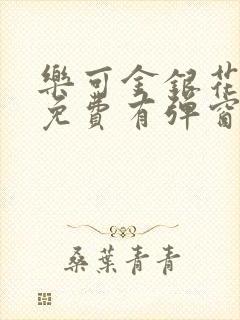 樂可金銀花
免費有彈窗
桑葉青青